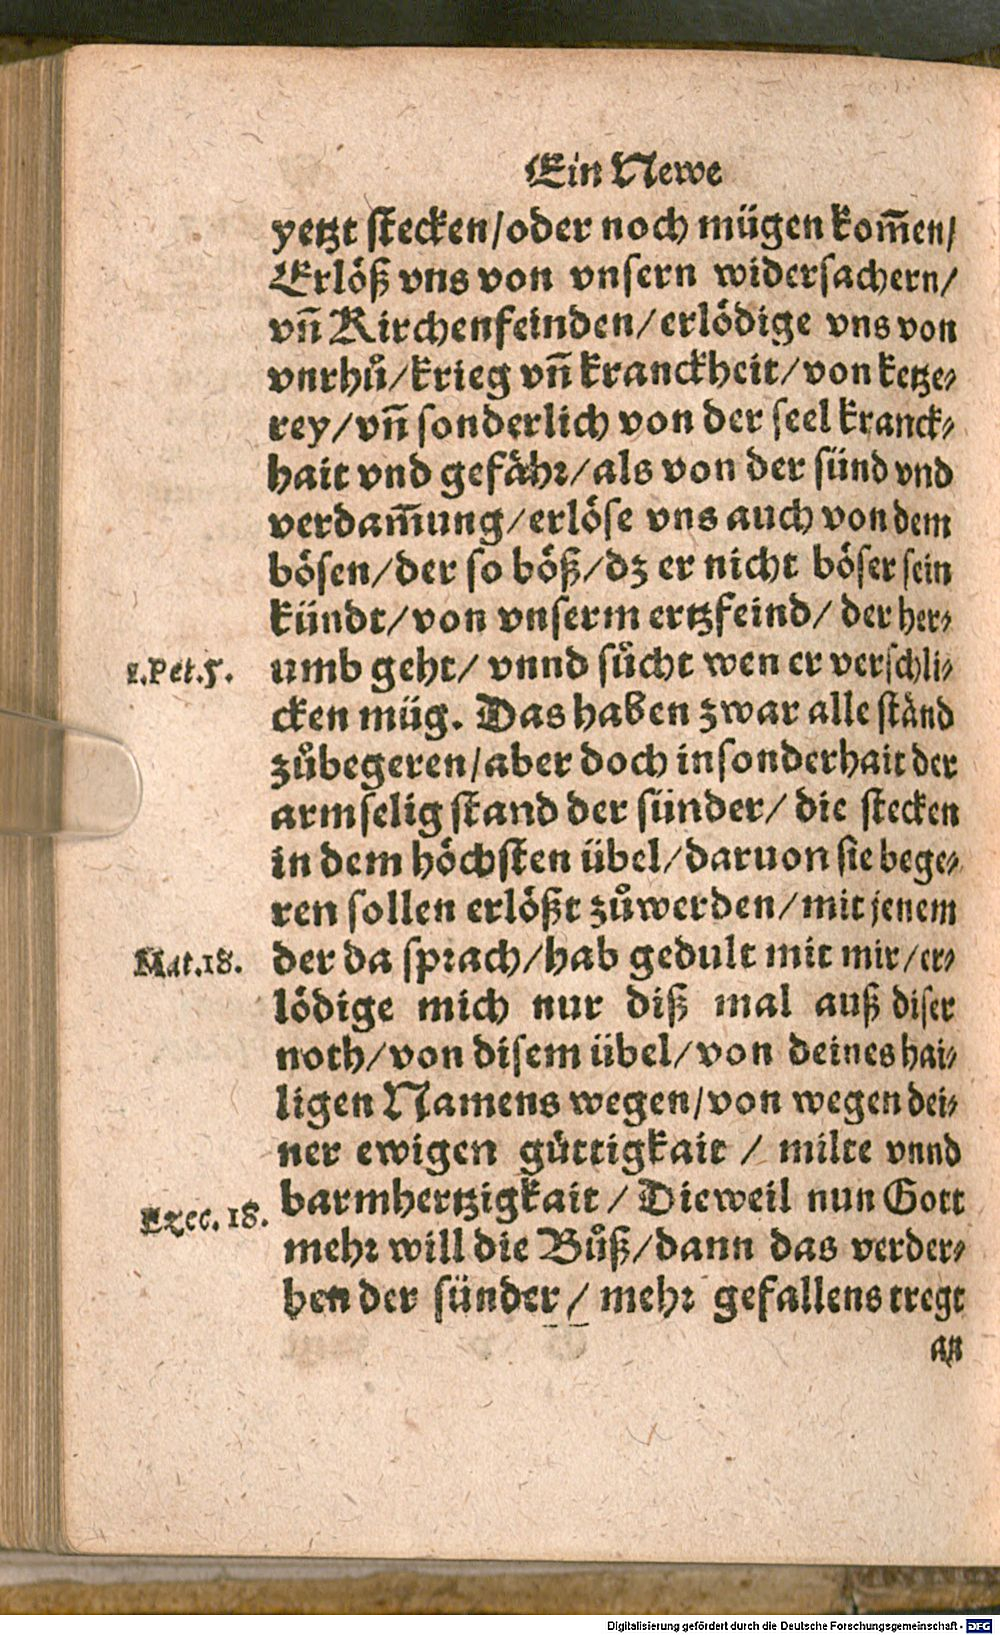 Ein Newe
yetzt stecken/oder noch mügen kom̃en/
Erlöß vns von vnsern widersachern/
vñ Kirchenfeinden/erlödige vns von
vnrhů/krieg vñ kranckheit/von ketze⸗
rey/vñ sonderlich von der seel kranck⸗
hait vnd gefähr/als von der sünd vnd
verdam̃ung/erlöse vns auch von dem
bösen/der so böß/dz er nicht böser sein
kündt/von vnserm ertzfeind/ der her⸗
1.Pet.5. umb geht/ vnnd sůcht wen er verschli⸗
cken müg. Das haben zwar alle ständ
zůbegeren/aber doch insonderhait der
armselig stand der sünder/ die stecken
in dem höchsten übel/daruon sie bege⸗
ren sollen erlößt zůwerden/mit jenem
Mat.18. der da sprach/hab gedult mit mir/er⸗
lödige mich nur diß mal auß diser
noth/von disem übel/von deines hai⸗
ligen Namens wegen/von wegen dei⸗
ner ewigen güttigkait / milte vnnd
Ezec. 18. barmhertzigkait / Dieweil nun Gott
mehr will die Bůß/dann das verder⸗
ben der sünder / mehr gefallens tregt
an
Digitalisierung gefördert durch die Deutsche Forschungsgemeinschaft - DFG